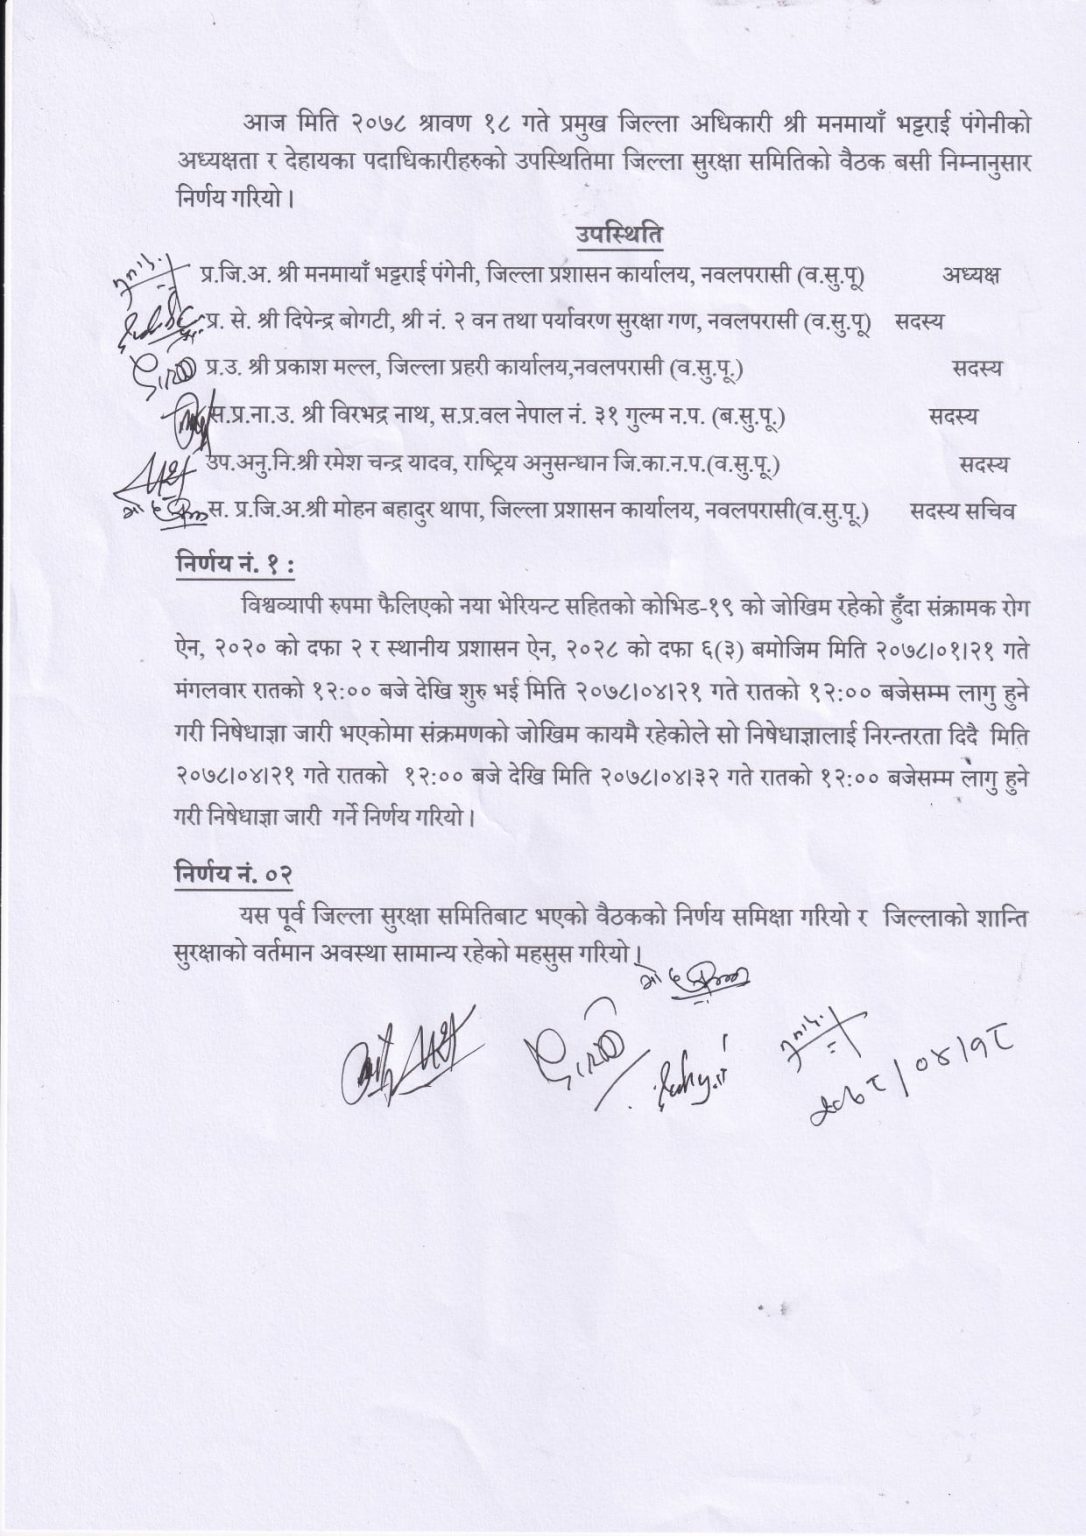 आज मिति २०७८ श्रावण १८ गते प्रमुख जिल्ला अधिकारी श्री मनमायाँ भट्टराई पंगेनीको
अध्यक्षता र देहायका पदाधिकारीहरुको उपस्थितिमा जिल्ला सुरक्षा समितिको वैठक बसी निम्नानुसार
निर्णय गरियो ।
उपस्थिति
प्र.जि.अ. श्री मनमायाँ भट्टराई पंगेनी, जिल्ला प्रशासन कार्यालय, नवलपरासी (व.सु.पू) अध्यक्ष
प्र. से. श्री दिपेन्द्र बोगटी, श्री नं. २ वन तथा पर्यावरण सुरक्षा गण, नवलपरासी (व.सु.पू) सदस्य
प्र.उ. श्री प्रकाश मल्ल, जिल्ला प्रहरी कार्यालय,नवलपरासी (व.सु.पू.) सदस्य
स.प्र.ना.उ. श्री विरभद्र नाथ, स.प्र.वल नेपाल नं. ३१ गुल्म न.प. (ब.सु.पू.) सदस्य
उप.अनु.नि.श्री रमेश चन्द्र यादव, राष्ट्रिय अनुसन्धान जि.का.न.प.(व.सु.पू.) सदस्य
स. प्र.जि.अ.श्री मोहन बहादुर थापा, जिल्ला प्रशासन कार्यालय, नवलपरासी(व.सु.पू.) सदस्य सचिव
निर्णय नं. १ :
विश्वव्यापी रुपमा फैलिएको नया भेरियन्ट सहितको कोभिड-१९ को जोखिम रहेको हुँदा संक्रामक रोग
ऐन, २०२० को दफा २ र स्थानीय प्रशासन ऐन, २०२८ को दफा ६(३) बमोजिम मिति २०७८।०१।२१ गते
मंगलवार रातको १२:०० बजे देखि शुरु भई मिति २०७८।०४।२१ गते रातको १२:०० बजेसम्म लागु हुने
गरी निषेधाज्ञा जारी भएकोमा संक्रमणको जोखिम कायमै रहेकोले सो निषेधाज्ञालाई निरन्तरता दिदै मिति
२०७८।०४।२१ गते रातको १२:०० बजे देखि मिति २०७८।०४।३२ गते रातको १२:०० बजेसम्म लागु हुने
गरी निषेधाज्ञा जारी गर्ने निर्णय गरियो ।
निर्णय नं. ०२
यस पूर्व जिल्ला सुरक्षा समितिबाट भएको वैठकको निर्णय समिक्षा गरियो र जिल्लाको शान्ति
सुरक्षाको वर्तमान अवस्था सामान्य रहेको महसुस गरियो ।
२०७८/०४/१८